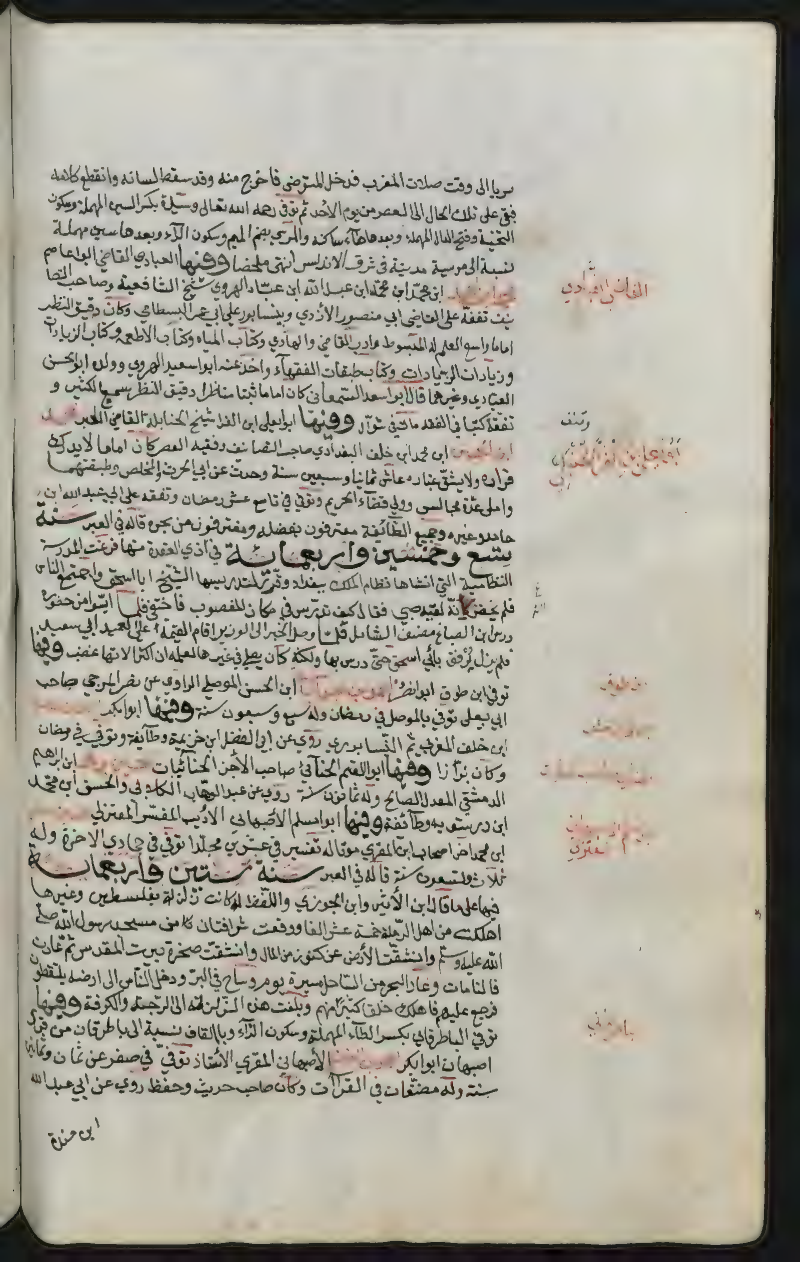 سريا الى وقت صلات المغرب فدخل المتوضى فاخرج منه وقد سقط لسانه وانقطع كلامه
فبقي على تلك الحال الى العصر من يوم الأحد ثم توفي رحمه الله تعالى وسيدة بكسر السين المهملة وسكون
التحتية وفتح الدال المهملة وبعدها هآء ساكنه والمرسي بضم الميم وسكون الرآء وبعدها سين مهملة
نسبة الى مرسية مدينة في شرق الاندلس انتهى ملخصا وفيها العبادي القاضي ابو عاصم
محمد ابن احمد ابن محمد ابن عبد الله ابن عباد الهروي شيخ الشافعية وصاحب التصا
نيف تفقه على القاضي ابي منصور الأزدي وبنيسابور على ابي عمر البسطامي وكان دقيق النظر
اماما واسع العلم له المبسوط وادب القاضي والهادي وكتاب المياه وكتاب الأطعمة وكتاب الزيادات
وزيادات الزيادات وكتاب طبقات الفقهآء واخذ عنه ابو سعيد الهروي وولده ابو الحسن
العبادي وغيرهما قال ابو سعد السمعاني كان اماما ثبتا مناظرا دقيق النظر سمع الكثير و
تفقه مات في شوال وفيها ابو يعلى ابن الفرا شيخ الحنابلة القاضي الحبر محمد
ابن الحسين ابن محمد ابن خلف البغدادي صاحب التصانيف وفقيه العصر كان اماما لا يدرك
قراره ولا يشق غباره عاش ثمانيا وسبعين سنة وحدث عن ابي الحربي والمخلص وطبقتهما
واملى عدة مجالس وولي قضاء الحريم وتوفي في تاسع عشر رمضان وتفقه على ابي عبد الله ابن
حامد وغيره وجميع الطائفة معترفون بفضله ومغترفون من بحره قاله في العبر سنة
تسع وخمسين واربعمائة في ذي القعدة منها فرغت المدرسة
النظامية التي انشاها نظام الملك ببغداد وقرر لتدريسها الشيخ ابا اسحق واجتمع الناس
فلم يحضر لانه لقيه صبي فقال كيف تدرس في مكان مغصوب فاختفى فلما ايسوا من حضوره
درس ابن الصباغ مصنف الشامل فلما وصل الخبر الى الوزير اقام القيمة على العميد ابي سعيد
فلم يزل يرفق بابي اسحق حتى درس بها ولكنه كان يصلي في غيرها لعلمه ان اكثر الاتها غصب وفيها
توفي ابن طوق ابو نصر ابن الحسن الموصلي الراوي عن نصر المرجي صاحب
ابي يعلى توفي بالموصل في رمضان وله سبع وسبعون سنة وفيها ابو بكر
ابن خلف المغربي ثم النيسابوري روي عن ابي الفضل ابن خزيمة وطآيفة وتوفي في رمضان
وكان بزازا وفيها ابو القسم الحنآئي صاحب الأجزآ الحنآئيات ابن ابراهيم
الدمشقي المعدل الصالح وله ثمانون سنة روي عن عبد الوهاب الكلابي والحسن ابن محمد
ابن درستويه وطآئفة وفيها ابو مسلم الأصبهاني الأديب المفسر المعتزلي
ابن محمد اخر اصحاب ابن المقري موتا له تفسير في عشرين مجلدا توفي في جمادي الاخرة وله
ثلاث وتسعون سنة قاله في العبر سنة ستين واربعمائة
فيها على ما قال ابن الأثير وابن الجوزي واللفظ له كانت زلزلة بفلسطين وغيرها
اهلكت من اهل الرملة خمسة عشر الفا ووقعت شرافتان من مسجد رسول الله صلى
الله عليه وسلم وانشقت الأرض عن كنوز من المال وانشقت صخرة بيت المقدس ثم عادت
فالتامت وغار البحر من الساحل مسيرة يوم وساح في البر ودخل الناس الى ارضه يلتقطون
فرجع عليهم فاهلك خلقا كثيرا منهم وبلغت هذه الزلزلة الى الرحبة والكوفة وفيها
توفي الباطرقاني بكسر الطآء المهملة وسكون الرآء وبالقاف نسبة الى باطرقان من قرى
اصبهان ابو بكر الأصبهاني المقري الأستاذ توفي في صفر عن ثمان وثمانين
سنة وله مصنفات في القرآات وكان صاحب حديث وحفظ روي عن ابي عبد الله
ابن مندة
القاضي العبادي
ابن طوق